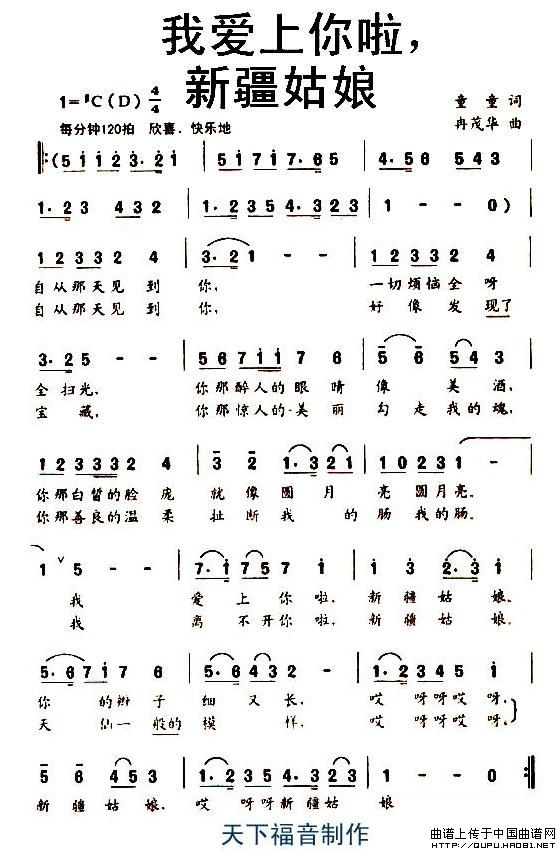 我爱上你啦，
新疆姑娘
1=♯C（D）4/4
每分钟120拍 欣喜、快乐地
童童 词
冉茂华 曲
𝄆(5 1 1 2 3·2 1 | 5 1 7 1 7·6 5 |
1·2 3 4 3 2 | 1·2 3 5 4·3 2 3 | 1 - - 0)
1 2 3 3 2 4 | 3·2 1 - - | 1 2 3 3 2 4
自从那天见到 你， 一切烦恼全呀
自从那天见到 你， 好像发现了
3·2 5 - - | 5 6 7 1 1 7 6 | 5 6 5 4
全扫光， 你那醉人的眼睛 像美酒，
宝藏， 你那惊人的美丽 勾走我的魂，
1 2 3 3 3 2 4 | 3 2 1·3 2 1 | 1 0 2 3 1 -
你那白皙的脸庞 就像圆月 亮圆月亮。
你那善良的温柔 扯断我的肠我的肠。
1 5 - - | 7·1 7 5 7 1 | 1 3 2·3 1
我 爱上你啦， 新疆姑娘，
我 离不开你啦， 新疆姑娘，
5·6 7 1 7 6 | 5·6 5 4 5 - | 1·2 3 4 5 1
你的辫子 细又长， 哎呀呀哎呀，
天仙一般的 模样， 哎呀呀哎呀，
5 6 4 5 3 | 1·2 3 4 3 2 | 2 - - 0 𝄇
新疆姑娘， 哎呀呀新疆姑娘
天下福音制作
曲谱上传于中国曲谱网
HTTP://QUPU.HAO81.NET